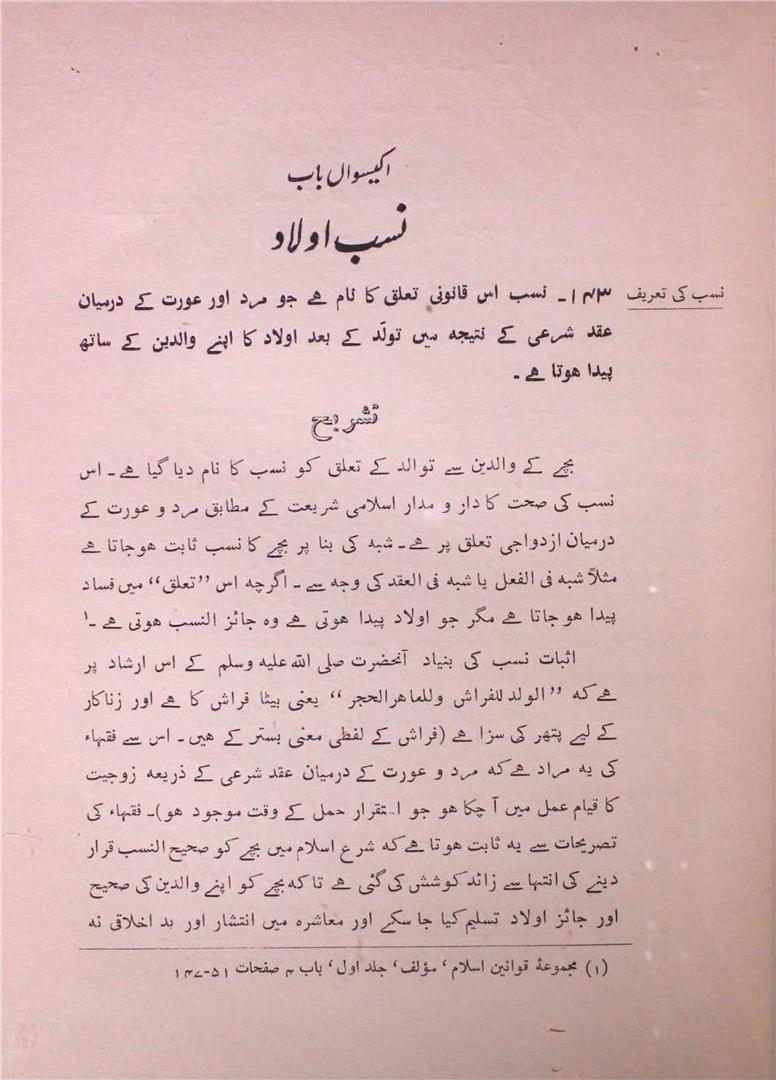 اکیسواں باب
نسب اولاد
نسب کی تعریف
۱۴۳۔ نسب اس قانونی تعلق کا نام ہے جو مرد اور عورت کے درمیان
عقد شرعی کے نتیجہ میں تولّد کے بعد اولاد کا اپنے والدین کے ساتھ
پیدا ہوتا ہے ۔
تشریح
بچے کے والدین سے توالد کے تعلق کو نسب کا نام دیا گیا ہے۔ اس
نسب کی صحت کا دار و مدار اسلامی شریعت کے مطابق مرد و عورت کے
درمیان ازدواجی تعلق پر ہے۔ شبہ کی بنا پر بچے کا نسب ثابت ہوجاتا ہے
مثلاً شبہ فی الفعل یا شبہ فی العقد کی وجہ سے ۔ اگرچہ اس ”تعلق“ میں فساد
پیدا ہو جاتا ہے مگر جو اولاد پیدا ہوتی ہے وہ جائز النسب ہوتی ہے ۔۱
اثبات نسب کی بنیاد آنحضرت صلی اللہ علیہ وسلم کے اس ارشاد پر
ہے کہ ”الولد للفراش وللعاھرالحجر“ یعنی بیٹا فراش کا ہے اور زناکار
کے لیے پتھر کی سزا ہے (فراش کے لفظی معنی بستر کے ہیں۔ اس سے فقہاء
کی یہ مراد ہے کہ مرد و عورت کے درمیان عقد شرعی کے ذریعہ زوجیت
کا قیام عمل میں آ چکا ہو جو استقرار حمل کے وقت موجود ہو)۔ فقہاء کی
تصریحات سے یہ ثابت ہوتا ہے کہ شرع اسلام میں بچے کو صحیح النسب قرار
دینے کی انتہا سے زائد کوشش کی گئی ہے تاکہ بچے کو اپنے والدین کی صحیح
اور جائز اولاد تسلیم کیا جا سکے اور معاشرہ میں انتشار اور بد اخلاقی نہ
(۱) مجموعۂ قوانین اسلام، مؤلف، جلد اول، باب ۴ صفحات ۵۱-۱۴۷